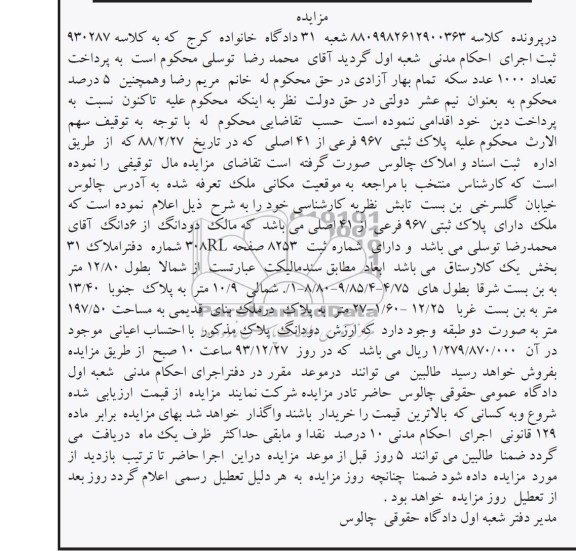 مزایده
درپرونده کلاسه ۸۸۰۹۹۸۲۶۱۲۹۰۰۳۶۳ شعبه ۳۱ دادگاه خانواده کرج که به کلاسه ۹۳۰۲۸۷
ثبت اجرای احکام مدنی شعبه اول گردید آقای محمد رضا توسلی محکوم است به پرداخت
تعداد ۱۰۰۰ عدد سکه تمام بهار آزادی در حق محکوم له خانم مریم رضا وهمچنین ۵ درصد
محکوم به بعنوان نیم عشر دولتی در حق دولت نظر به اینکه محکوم علیه تاکنون نسبت به
پرداخت دین خود اقدامی ننموده است حسب تقاضایی محکوم له با توجه به توقیف سهم
الارث محکوم علیه پلاک ثبتی ۹۶۷ فرعی از ۴۱ اصلی که در تاریخ ۸۸/۲/۲۷ که از طریق
اداره ثبت اسناد و املاک چالوس صورت گرفته است تقاضای مزایده مال توقیفی را نموده
است که کارشناس منتخب با مراجعه به موقعیت مکانی ملک تعرفه شده به آدرس چالوس
خیابان گلسرخی بن بست تابش نظریه کارشناسی خود را به شرح ذیل اعلام نموده است که
ملک دارای پلاک ثبتی ۹۶۷ فرعی از ۴۱ اصلی می باشد که مالک دودانگ از ۶دانگ آقای
محمدرضا توسلی می باشد و دارای شماره ثبت ۸۲۵۳ صفحه ۳۰۸RL شماره دفتراملاک ۳۱
بخش یک کلارستاق می باشد ابعاد مطابق سندمالیکت عبارتست از شمالا بطول ۱۲/۸۰ متر
به بن بست شرقا بطول های ۴/۷۵-۹/۸۵/۴-۸/۸۰-۱/. شمالی ۱۰/۹ متر به پلاک جنوبا ۱۳/۴۰
متر به بن بست غربا ۱۲/۲۵ -۱/۶۰-۲۷ متر به پلاک درملک بنای قدیمی به مساحت ۱۹۷/۵۰
متر به صورت دو طبقه وجود دارد که ارزش دودانگ پلاک مذکور با احتساب اعیانی موجود
در آن ۱/۲۷۹/۸۷۰/۰۰۰ ریال می باشد که در روز ۹۳/۱۲/۲۷ ساعت ۱۰ صبح از طریق مزایده
بفروش خواهد رسید طالبین می توانند درموعد مقرر در دفتراجرای احکام مدنی شعبه اول
دادگاه عمومی حقوقی چالوس حاضر تادر مزایده شرکت نمایند مزایده از قیمت ارزیابی شده
شروع وبه کسانی که بالاترین قیمت را خریدار باشند واگذار خواهد شد بهای مزایده برابر ماده
۱۲۹ قانونی اجرای احکام مدنی ۱۰ درصد نقدا و مابقی حداکثر ظرف یک ماه دریافت می
گردد ضمنا طالبین می توانند ۵ روز قبل از موعد مزایده دراین اجرا حاضر تا ترتیب بازدید از
مورد مزایده داده شود ضمنا چنانچه روز مزایده به هر دلیل تعطیل رسمی اعلام گردد روز بعد
از تعطیل روز مزایده خواهد بود .
مدیر دفتر شعبه اول دادگاه حقوقی چالوس